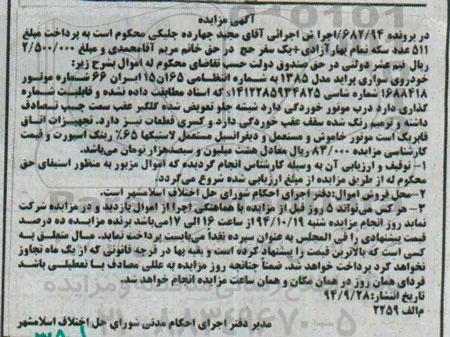 آگهی مزایده
در پرونده ۶۸۲/۹۴ اجرائی اجرائی آقای مجید چهارده چلیکی محکوم است به پرداخت مبلغ
۵۱۱ عدد سکه تمام بهار آزادی + یک سفر حج در حق خانم مریم آقامحمدی و مبلغ ۲/۵۰۰/۰۰۰
ریال نیم عشر دولتی در حق صندوق دولت حسب تقاضای محکوم له اموال بشرح زیر:
خودروی سواری پراید مدل ۱۳۸۵ به شماره انتظامی ۱۶۵ن۱۵ ایران ۶۶ شماره موتور
۱۶۸۸۴۱۸ شماره شاسی ۱۴۱۲۲۸۵۹۳۴۸۲۵s که اسناد مطابقت داده نشده و قابلیت شماره
گذاری دارد درب موتور خوردگی دارد شیشه جلو تعویض شده گلگیر عقب سمت چپ تصادف
داشته و ترمیم رنگ شده سقف عقب خوردگی دارد و کسری قطعات نیز دارد. تجهیزات اتاق
فابریک است موتور خاموش و مستعمل و دیفرانسیل مستعمل لاستیکها ۶۵٪ رینگ اسپورت و قیمت
کارشناسی مزایده ۸۳/۰۰۰/ ریال معادل هشت میلیون و سیصدهزار تومان می‌باشد.
۱- توقیف و ارزیابی آن به وسیله کارشناس انجام گردیده که اموال مزبور به منظور استیفای حق
محکوم له از طریق مزایده از مبلغ ارزیابی شده شروع می‌گردد.
۲- محل فروش اموال: دفتر اجرای احکام شورای حل اختلاف اسلامشهر است.
۳- هر کس می‌تواند ۵ روز قبل از مزایده با هماهنگی اجرا از اموال بازدید و در مزایده شرکت
نماید روز انجام مزایده شنبه ۹۴/۱۰/۱۹ از ساعت ۱۶ الی ۱۷ می‌باشد برنده مزایده ده درصد
قیمت پیشنهادی را فی المجلس به عنوان سپرده نقدا می‌بایست پرداخت نماید. مال متعلق به
کسی است که بالاترین قیمت را پیشنهاد کرده است و بقیه بها در فرجه قانونی که از یک ماه تجاوز
نخواهد کرد پرداخت خواهد شد. ضمناً چنانچه روز مزایده به عللی مصادف با تعطیلی باشد
فردای همان روز در همان مکان و همان ساعت مزایده انجام خواهد شد.
تاریخ انتشار: ۹۴/۹/۲۸
م الف ۲۲۵۹
مدیر دفتر اجرای احکام مدنی شورای حل اختلاف اسلامشهر
۰۲۱-۸۸۳۴۹۶۷۰-۵